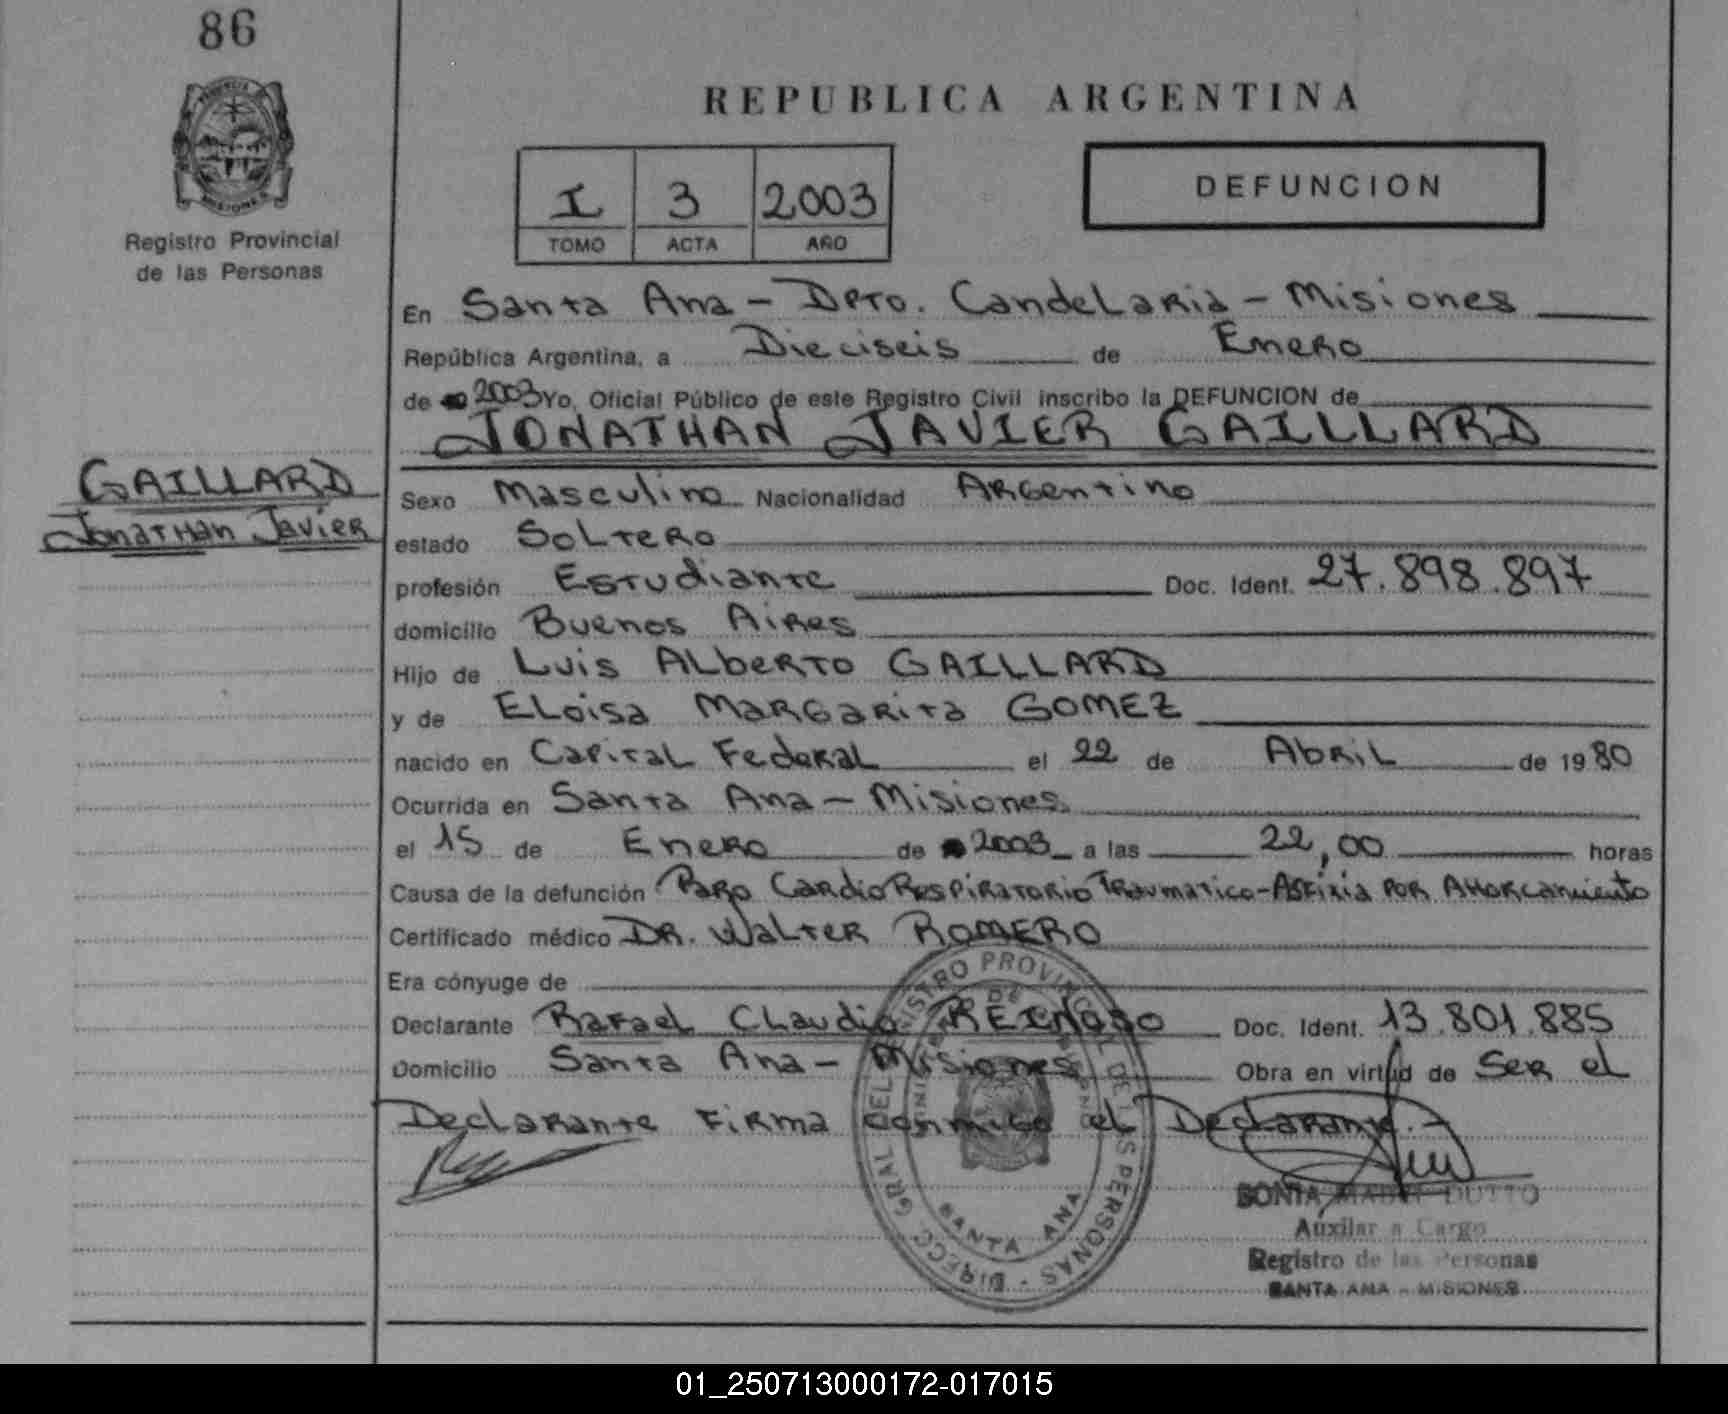 86
REPUBLICA ARGENTINA
I 3 2003
TOMO ACTA AÑO
DEFUNCION
Registro Provincial
de las Personas
En Santa Ana - Dpto. Candelaria - Misiones
República Argentina, a Dieciseis de Enero
de 2003 Yo, Oficial Público de este Registro Civil inscribo la DEFUNCION de
JONATHAN JAVIER GAILLARD
GAILLARD
Jonathan Javier
Sexo Masculino Nacionalidad Argentino
estado Soltero
profesión Estudiante Doc. Ident. 27.898.897
domicilio Buenos Aires
Hijo de Luis Alberto GAILLARD
y de Eloisa Margarita GOMEZ
nacido en Capital Federal el 22 de Abril de 1980
Ocurrida en Santa Ana - Misiones
el 15 de Enero de 2003 a las 22,00 horas
Causa de la defunción Paro Cardio Respiratorio Traumatico - Asfixia por Ahorcamiento
Certificado médico Dr. Walter ROMERO
Era cónyuge de
Declarante Rafael Claudio REINOSO Doc. Ident. 13.801.885
Domicilio Santa Ana - Misiones Obra en virtud de Ser el
Declarante Firma conmigo el Declarante.-
DIRECC. GRAL. DEL REGISTRO PROVINCIAL DE LAS PERSONAS
SANTA ANA
SONIA DUTTO
Auxilar a Cargo
Registro de las Personas
SANTA ANA - MISIONES
01_250713000172-017015